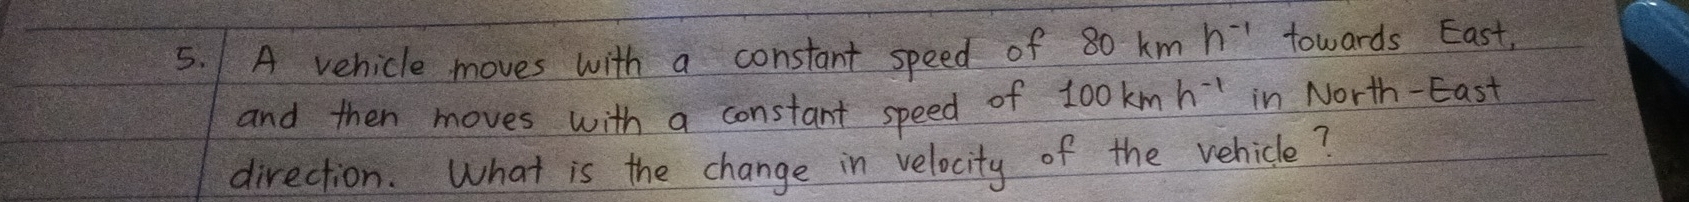 5. A vehicle moves with a constant speed of 80 km h⁻¹ towards East,
and then moves with a constant speed of 100 km h⁻¹ in North-East
direction. What is the change in velocity of the vehicle?